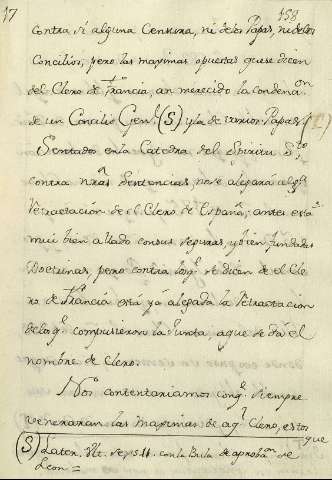 17
158
contra sí alguna Censura, ni delos Papas, ni delos
Concilios, pero las maximas opuestas que se dicen
del Clero de Francia, an merecido la condenaon
de un Concilio Genl (S) y la de varios Papas (T)
Sentados en la Catedra del Espiritu Sto,
contra nras Sentencias, no se alegará
Retractacion de el Clero de España, antes está
mui bien allado con sus seguras, y bien fundadas
Doctrinas, pero contra lo q se dicen de el Cle
ro de Francia está yá alegada la Retractacion
de los q compusieron la Junta, a que se dá el
nombre de Clero.
Nos contentariamos con q siempre
veneraran las Maximas de aql Clero, estos
que
(S) Later. Ult. Seps. 11. con la Bula de aprobaon de
Leon =